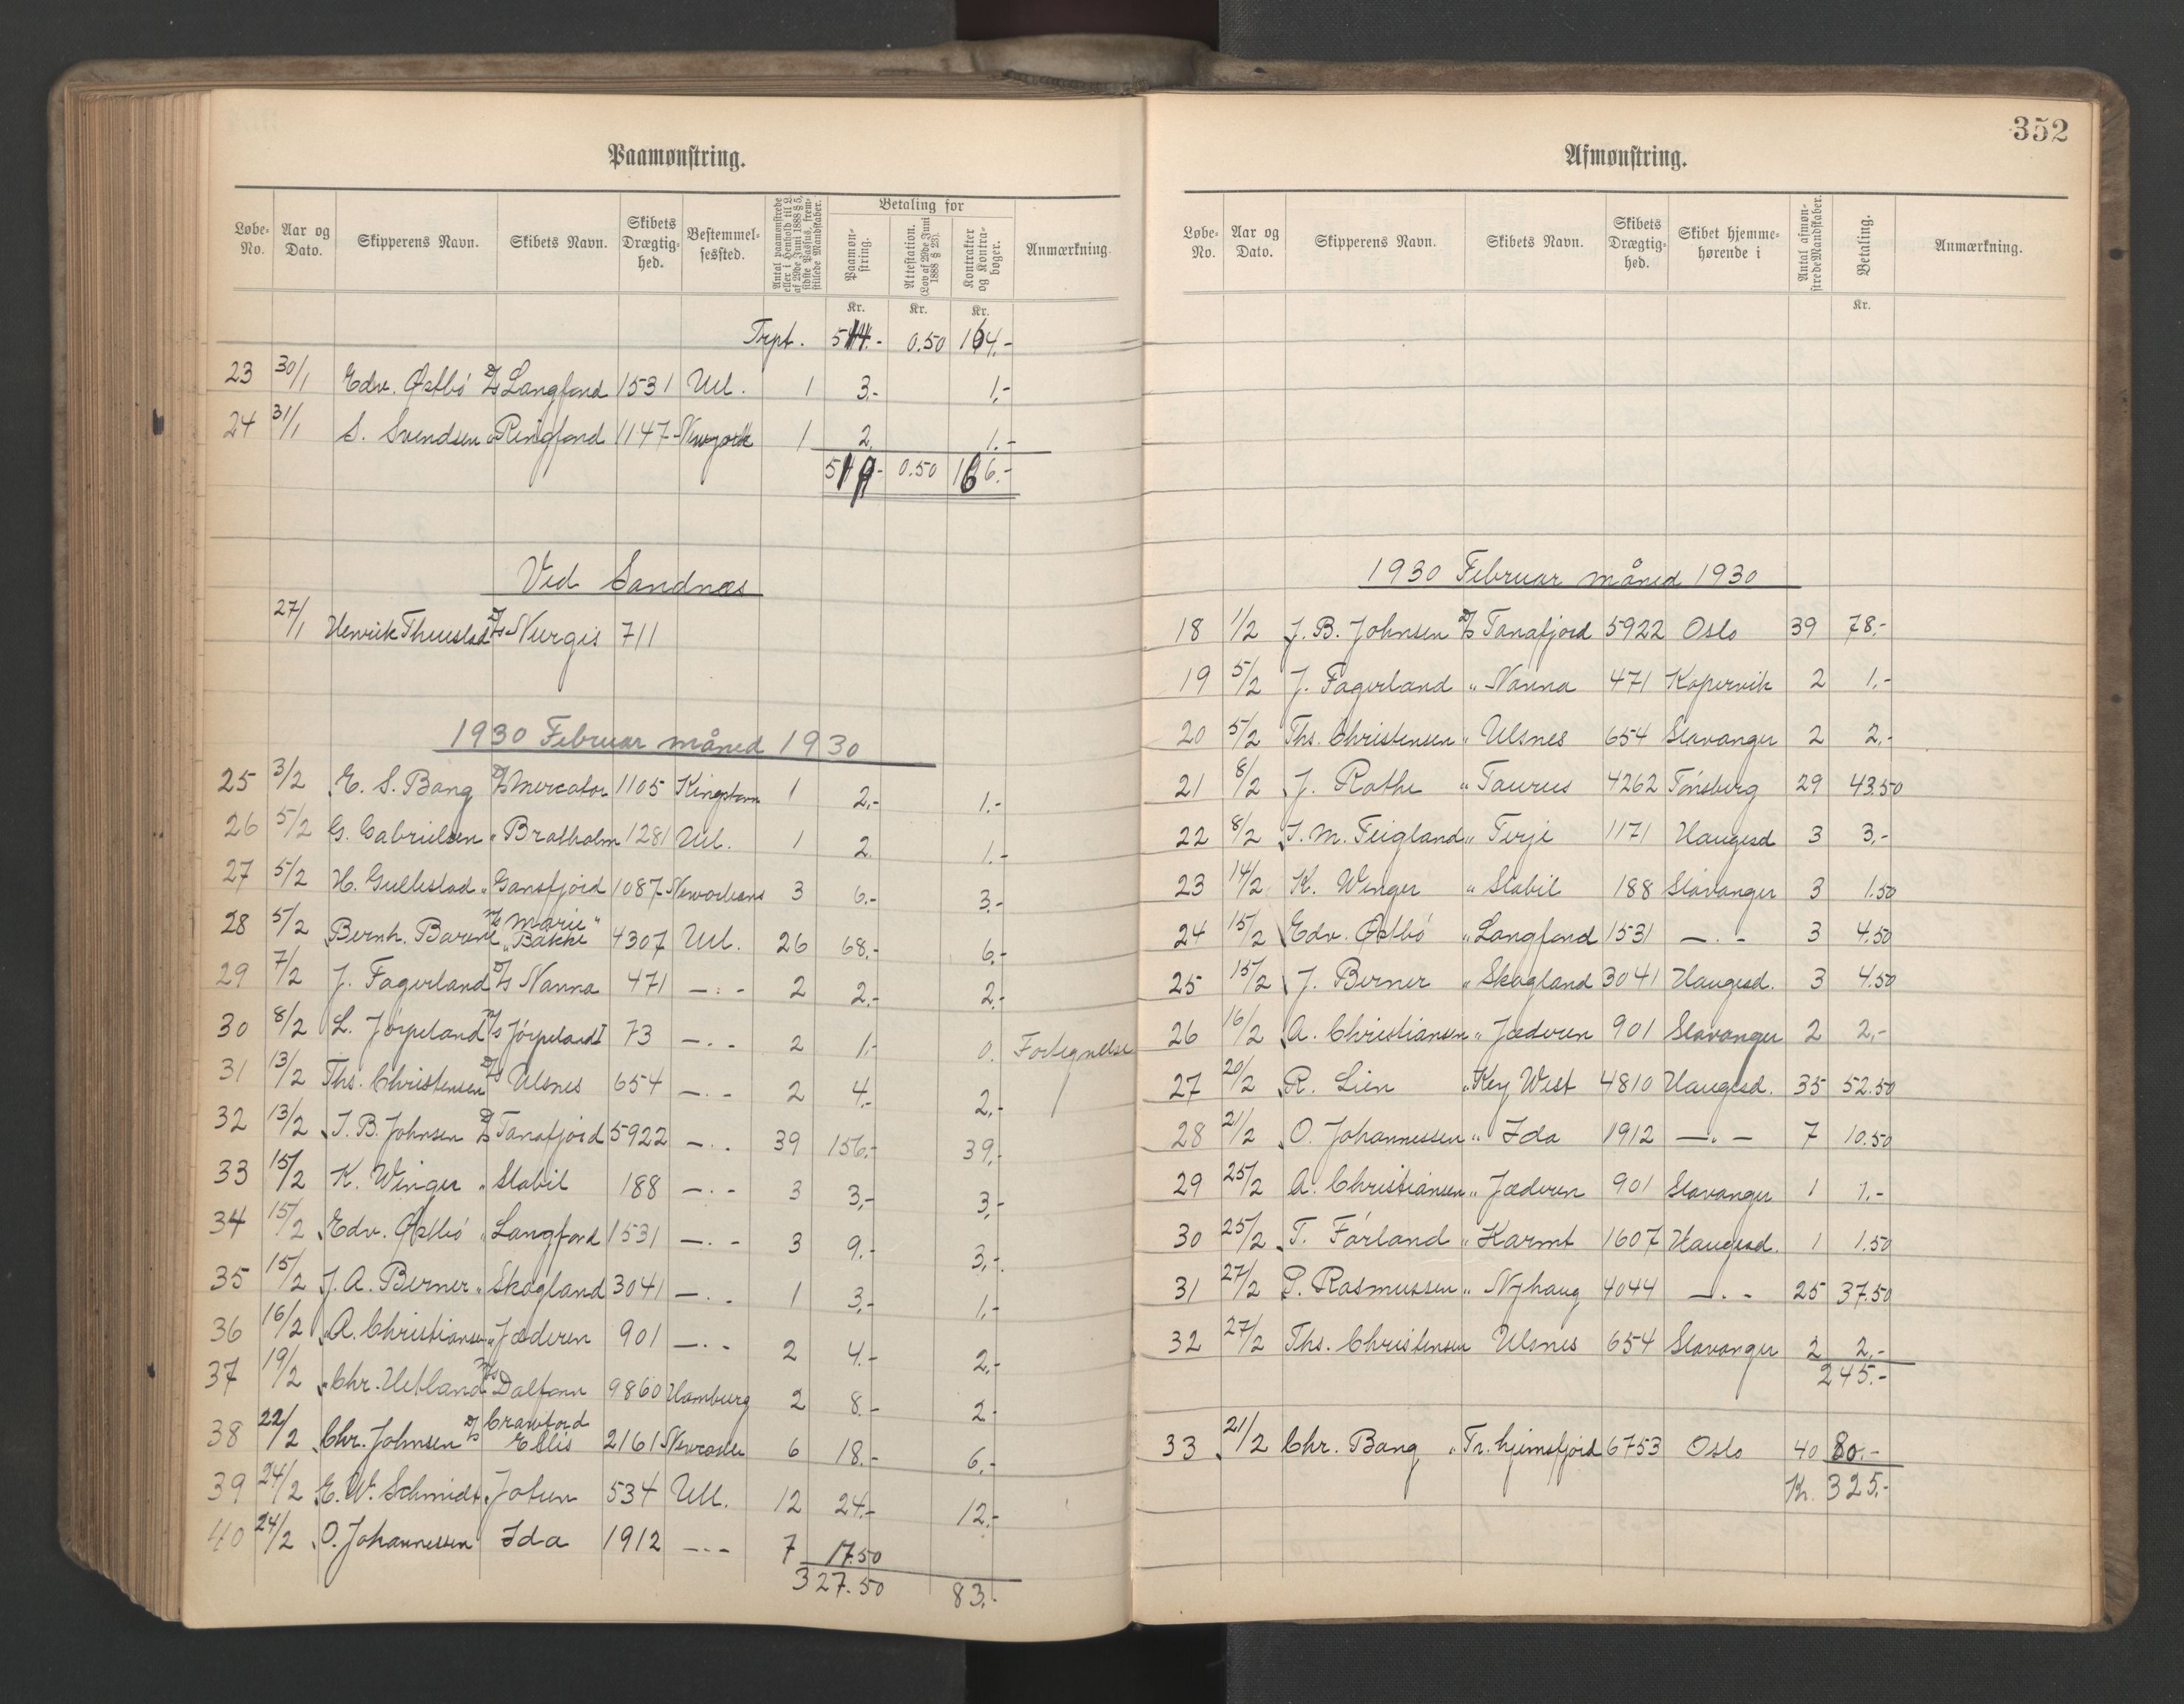 Paamønstring.
Løbe-No. Aar og Dato. Skipperens Navn. Skibets Navn. Skibets Drægtig-hed. Bestemmel-sessted. Antal paamønstrede eller i Henhold til L. af 29de Juni 1888 § 5, sidste Passus, frem-stillede Mandskaber. Betaling for Paamøn-string. Attestation. (Lov af 29de Juni 1888 § 23). Kontrakter og Kontra-bøger. Anmærkning.
Kr. Kr. Kr.
Trpt. 514.- 0.50 164.-
23 30/1 Edv. Østbö D/S Langfond 1531 Utl. 1 3.- 1,-
24 31/1 S. Svendsen " Ringfond 1147 Newyork 1 2 1.-
519.- 0.50 166.-
Ved Sandnæs
27/1 Henrik Thuestad D/S Nurgis 711
1930 Februar måned 1930
25 3/2 E. S. Bang D/S Mercator 1105 Kingston 1 2,- 1.-
26 5/2 G. Gabrielsen " Bratholm 1281 Utl. 1 2. 1.-
27 5/2 H. Gullestad " Gansfjord 1087 Neworleans 3 6.- 3.-
28 5/2 Bernh. M/S "Marie Bakke" 4307 Utl. 26 68.- 6.-
29 7/2 J. Fagerland D/S Nanna 471 —.- 2 2.- 2.-
30 8/2 L. Jörpeland M/S Jörpeland I 73 —.- 2 1.- 0. Fortegnelse
31 13/2 Ths. Christensen D/S Ulsnes 654 —.- 2 4.- 2,-
32 13/2 J. B. Johnsen D/S Tanafjord 5922 —.- 39 156.- 39.-
33 15/2 K. Winger " Stabil 188 —.- 3 3,- 3,-
34 15/2 Edv. Østbö " Langfond 1531 —.- 3 9.- 3,-
35 15/2 J. A. Berner " Skogland 3041 —.- 1 3,- 1,-
36 16/2 A. Christiansen " Jæderen 901 —.- 2 4.- 2,-
37 19/2 Chr. Uetland M/S Dalfonn 9860 Hamburg 2 8.- 2-
38 22/2 Chr. Johnsen D/S Crawford Ellis 2161 Newcastle 6 18.- 6.-
39 24/2 E. W. Schmidt " Jotun 534 Utl. 12 24.- 12.-
40 24/2 O. Johannessen Ida 1912 —.- 7 17.50
327.50 83.-
352
Afmønstring.
Løbe-No. Aar og Dato. Skipperens Navn. Skibets Navn. Skibets Drægtig-hed. Skibet hjemme-hørende i Antal afmøn-strede Mandskaber. Betaling. Anmærkning.
Kr.
1930 Februar måned 1930
18 1/2 J. B. Johnsen D/S Tanafjord 5922 Oslo 39 78.-
19 5/2 J. Fagerland " Nanna 471 Kopervik 2 1.-
20 5/2 Ths. Christensen " Ulsnes 654 Stavanger 2 2,-
21 8/2 J. Rothe " Taurus 4262 Tönsberg 29 43.50
22 8/2 T. M. Feigland " Terje 1171 Haugesd 3 3,-
23 14/2 K. Winger " Stabil 188 Stavanger 3 1.50
24 15/2 Edv. Østbö " Langfond 1531 —.- 3 4.50
25 15/2 J. Berner " Skogland 3041 Haugesd. 3 4.50
26 16/2 A. Christiansen " Jæderen 901 Stavanger 2 2,-
27 20/2 R. Lien " Key West 4810 Haugesd. 35 52.50
28 21/2 O. Johannessen " Ida 1912 —.- 7 10.50
29 25/2 A. Christiansen " Jæderen 901 Stavanger 1 1,-
30 25/2 T. Förland " Karmt 1607 Haugesd. 1 1.50
31 27/2 P. Rasmussen " Nyhaug 4044 —.- 25 37.50
32 27/2 Ths. Christensen Ulsnes 654 Stavanger 2 2,-
245.-
33 21/2 Chr. Bang " Tr.hjemsfjord 6753 Oslo 40 80.-
Kr. 325.-